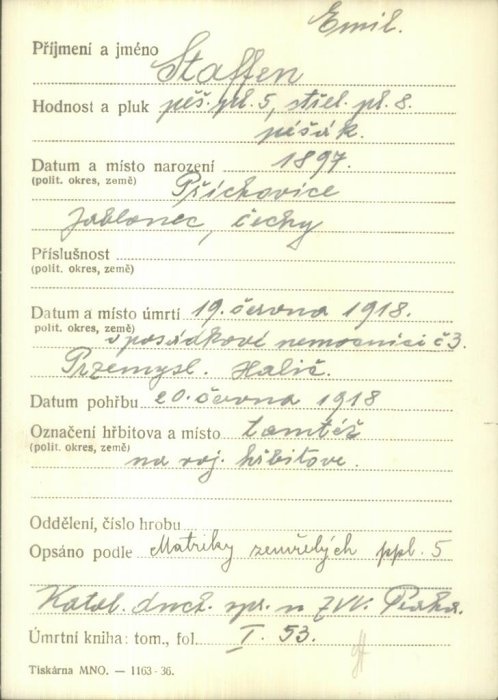 Emil.
Příjmení a jméno Staffen
Hodnost a pluk pěš. pl. 5, střel. pl. 8.
pěšák.
Datum a místo narození 1897.
(polit. okres, země) Příchovice
Jablonec, Čechy
Příslušnost
(polit. okres, země)
Datum a místo úmrtí 19. června 1918.
polit. okres, země)
v posádkové nemocnici č 3.
Przemysl. Halič.
Datum pohřbu 20. června 1918
Označení hřbitova a místo tamtéž
(polit. okres, země)
na voj. hřbitově.
Oddělení, číslo hrobu
Opsáno podle Matriky zemřelých ppl. 5
Katol. duch. spr. u ZVV. Praha.
Úmrtní kniha: tom., fol. I. 53.
Tiskárna MNO. — 1163-36.